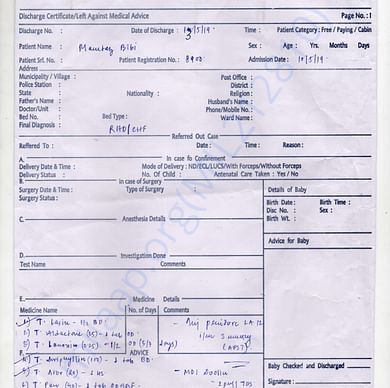 Discharge Certificate/Left Against Medical Advice Page No. : 1
Discharge No. : Date of Discharge : 13/5/19 Time : Patient Category : Free / Paying / Cabin
Patient Name : Bibi Sex : Age : Yrs. Months Days
Patient Srl. No. : Patient Registration No. : 8900 Admission Date : 10/5/19
Address
Municipality / Village : Post Office :
Police Station : District :
State : Nationality : Religion :
Father's Name : Husband's Name :
Doctor/Unit : Phone/Mobile No. :
Bed No. : Bed Type : Ward Name :
Final Diagnosis : RHD/CHF
Referred Out Case
Reffered To : Date : Time : Reason :
A. In case fo Confinement
Delivery Date & Time : Mode of Delivery : ND/ECL/LUCS/With Forceps/Without Forceps
Delivery Status : No. Of Child : Antenatal Care Taken : Yes / No
B. In case of Surgery
Surgery Date & Time : Type of Surgery
Surgery Status :
Details of Baby
Birth Date : Birth Time :
Disc No. : Sex :
Birth Wt. :
C. Anesthesia Details
Advice for Baby
D. Investigation Done
Test Name Comments
E. Medicine Details
Medicine Name No. of Days Comments
T. Lasix - 1/2 BD
T. Aldactone (25) - 1 tab OD
T. Lanoxin (0.25) - 1/2 OD (5/7 days)
Inj penidure LA 12
(AST)
F. ADVICE
T. Deriphyllin (150) - 1 tab BD
MDI
Baby Checked and Discharged
Signature :